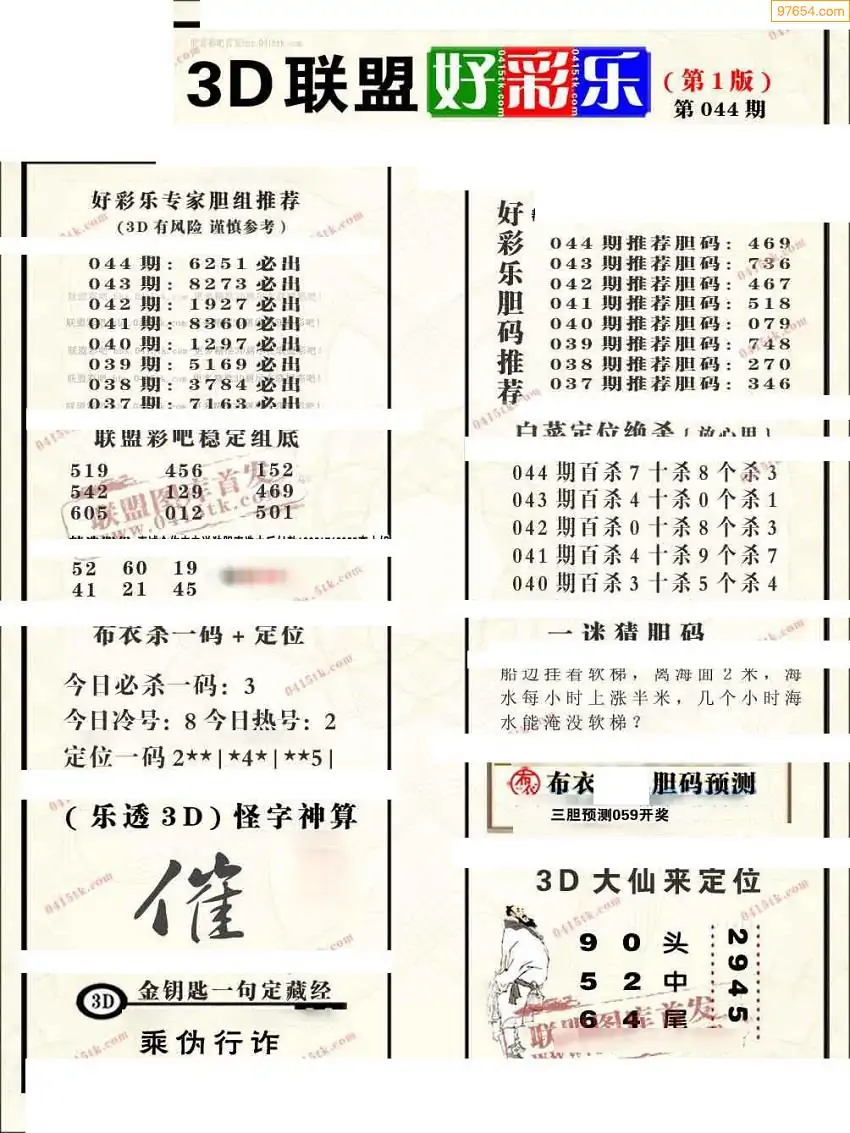 97654.com
3D联盟好彩乐
(第1版)
第044期
好彩乐专家胆组推荐
(3D有风险 谨慎参考)
044期: 6251必出
043期: 8273必出
042期: 1927必出
041期: 8360必出
040期: 1297必出
039期: 5169必出
038期: 3784必出
037期: 7163必出
联盟彩吧稳定组底
519 456 152
542 129 469
605 012 501
52 60 19
41 21 45
布衣杀一码+定位
今日必杀一码: 3
今日冷号: 8 今日热号: 2
定位一码2**|*4*|**5|
(乐透3D)怪字神算
催
3D 金钥匙一句定藏经
乘伪行诈
好彩乐胆码推荐
044期推荐胆码: 469
043期推荐胆码: 736
042期推荐胆码: 467
041期推荐胆码: 518
040期推荐胆码: 079
039期推荐胆码: 748
038期推荐胆码: 270
037期推荐胆码: 346
白菜定位绝杀(放心用)
044期百杀7十杀8个杀3
043期百杀4十杀0个杀1
042期百杀0十杀8个杀3
041期百杀4十杀9个杀7
040期百杀3十杀5个杀4
一迷猜胆码
船边挂着软梯，离海面2米，海
水每小时上涨半米，几个小时海
水能淹没软梯？
布衣 胆码预测
三胆预测059开奖
3D大仙来定位
9 0 头
5 2 中
6 4 尾
2945
联盟图库首发
www.0415tk.com
0415tk.com